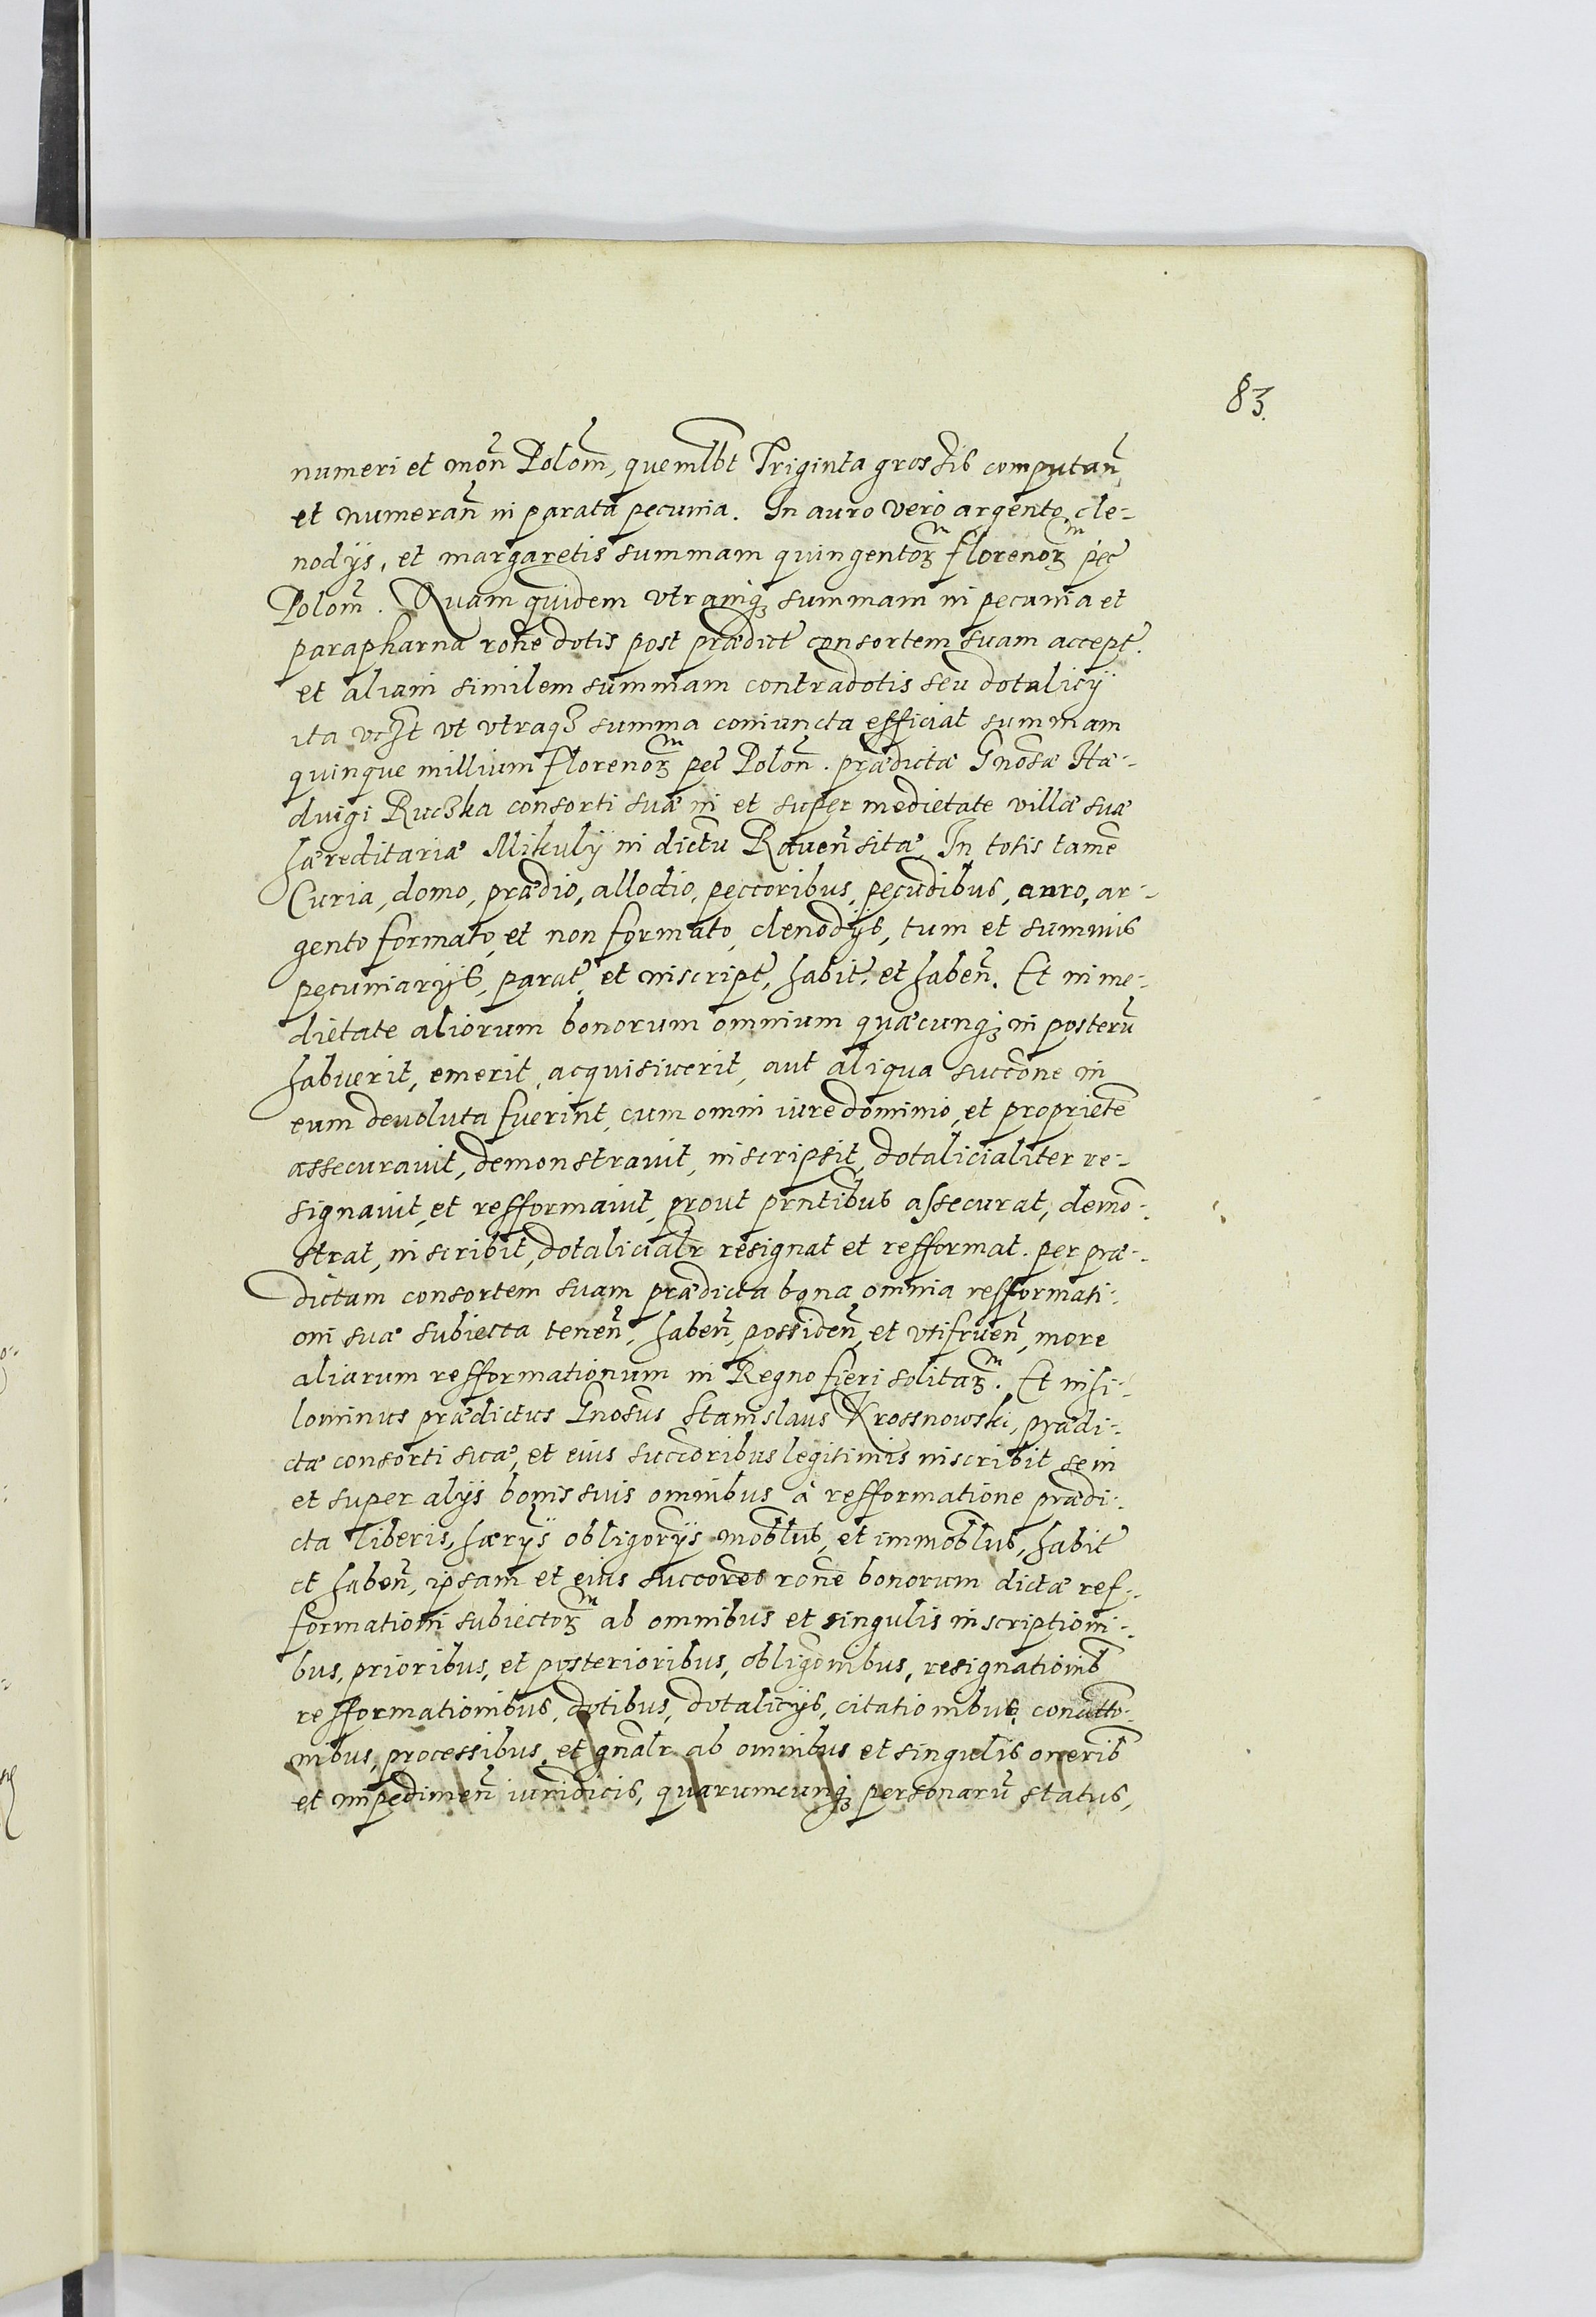 83.
numeri et mon̄ Polom̄, quemlbt Triginta grossis computan̄,
et numeran̄ in parata pecunia. In auro vero argento, cle-
nodijs, et margaretis summam quingentorꝫ florenorꝫ pec̄
Polom̄. Quam quidem vtramqꝫ summam in pecunia et
parapharna rōne dotis post prædict̄ consortem suam accept̄.
et aliam similem summam contradotis seu dotalicij
ita vt vtraqꝫ summa coniuncta efficiat summam
quinque millium florenorꝫ pec̄ Polon̄. prædictæ Gnosæ Hæ-
dvigi Ruczka consorti suæ in et super medietate villæ suæ
hæreditariæ Mikuly in dictu Raven̄ sitæ, In totis tamē
Curia, domo, prædio, allodio, peccoribus, pecudibus, auro, ar-
gento formato, et non formato, clenodijs, tum et summis
pecuniarijs, parat̄, et inscript̄, habit̄, et haben̄. Et in me-
dietate aliorum bonorum omnium quæcunqꝫ in posterū
habuerit, emerit, acquisiverit, aut aliqua succōne in
eum devoluta fuerint, cum omni iure dominio, et proprietē
assecuravit, demonstravit, inscripsit, dotalicialiter re-
signavit, et refformavit, prout prntibus assecurat, demō-
strat, inscribit, dotalicialr resignat et refformat. per præ-
dictam consortem suam prædicta bona omnia refformati-
oni suæ subiecta tenen̄, haben̄, possiden̄, et vtifruen̄, more
aliarum refformationum in Regno fieri solitarꝫ. Et nihi-
lominus prædictus Gnosus Stanislaus Krossnowski, prædi-
ctæ consorti suæ, et eius succoribus legitimis inscribit se in
et super alijs bonis suis omnibus a refformatione prædi-
cta liberis, hærijs obligorijs moblbus, et immoblbus, habit̄
et haben̄, ipsam et eius succores rōne bonorum dictæ ref-
formationi subiectorꝫ ab omnibus et singulis inscriptioni-
bus, prioribus, et posterioribus, obligōnibus, resignationib
refformationibus, dotibus, dotalicijs, citationibus,
nibus, processibus, et gnalr ab omnibus et singulis onerib
et impedimen̄ iuridicis, quarumcunqꝫ personarū status,